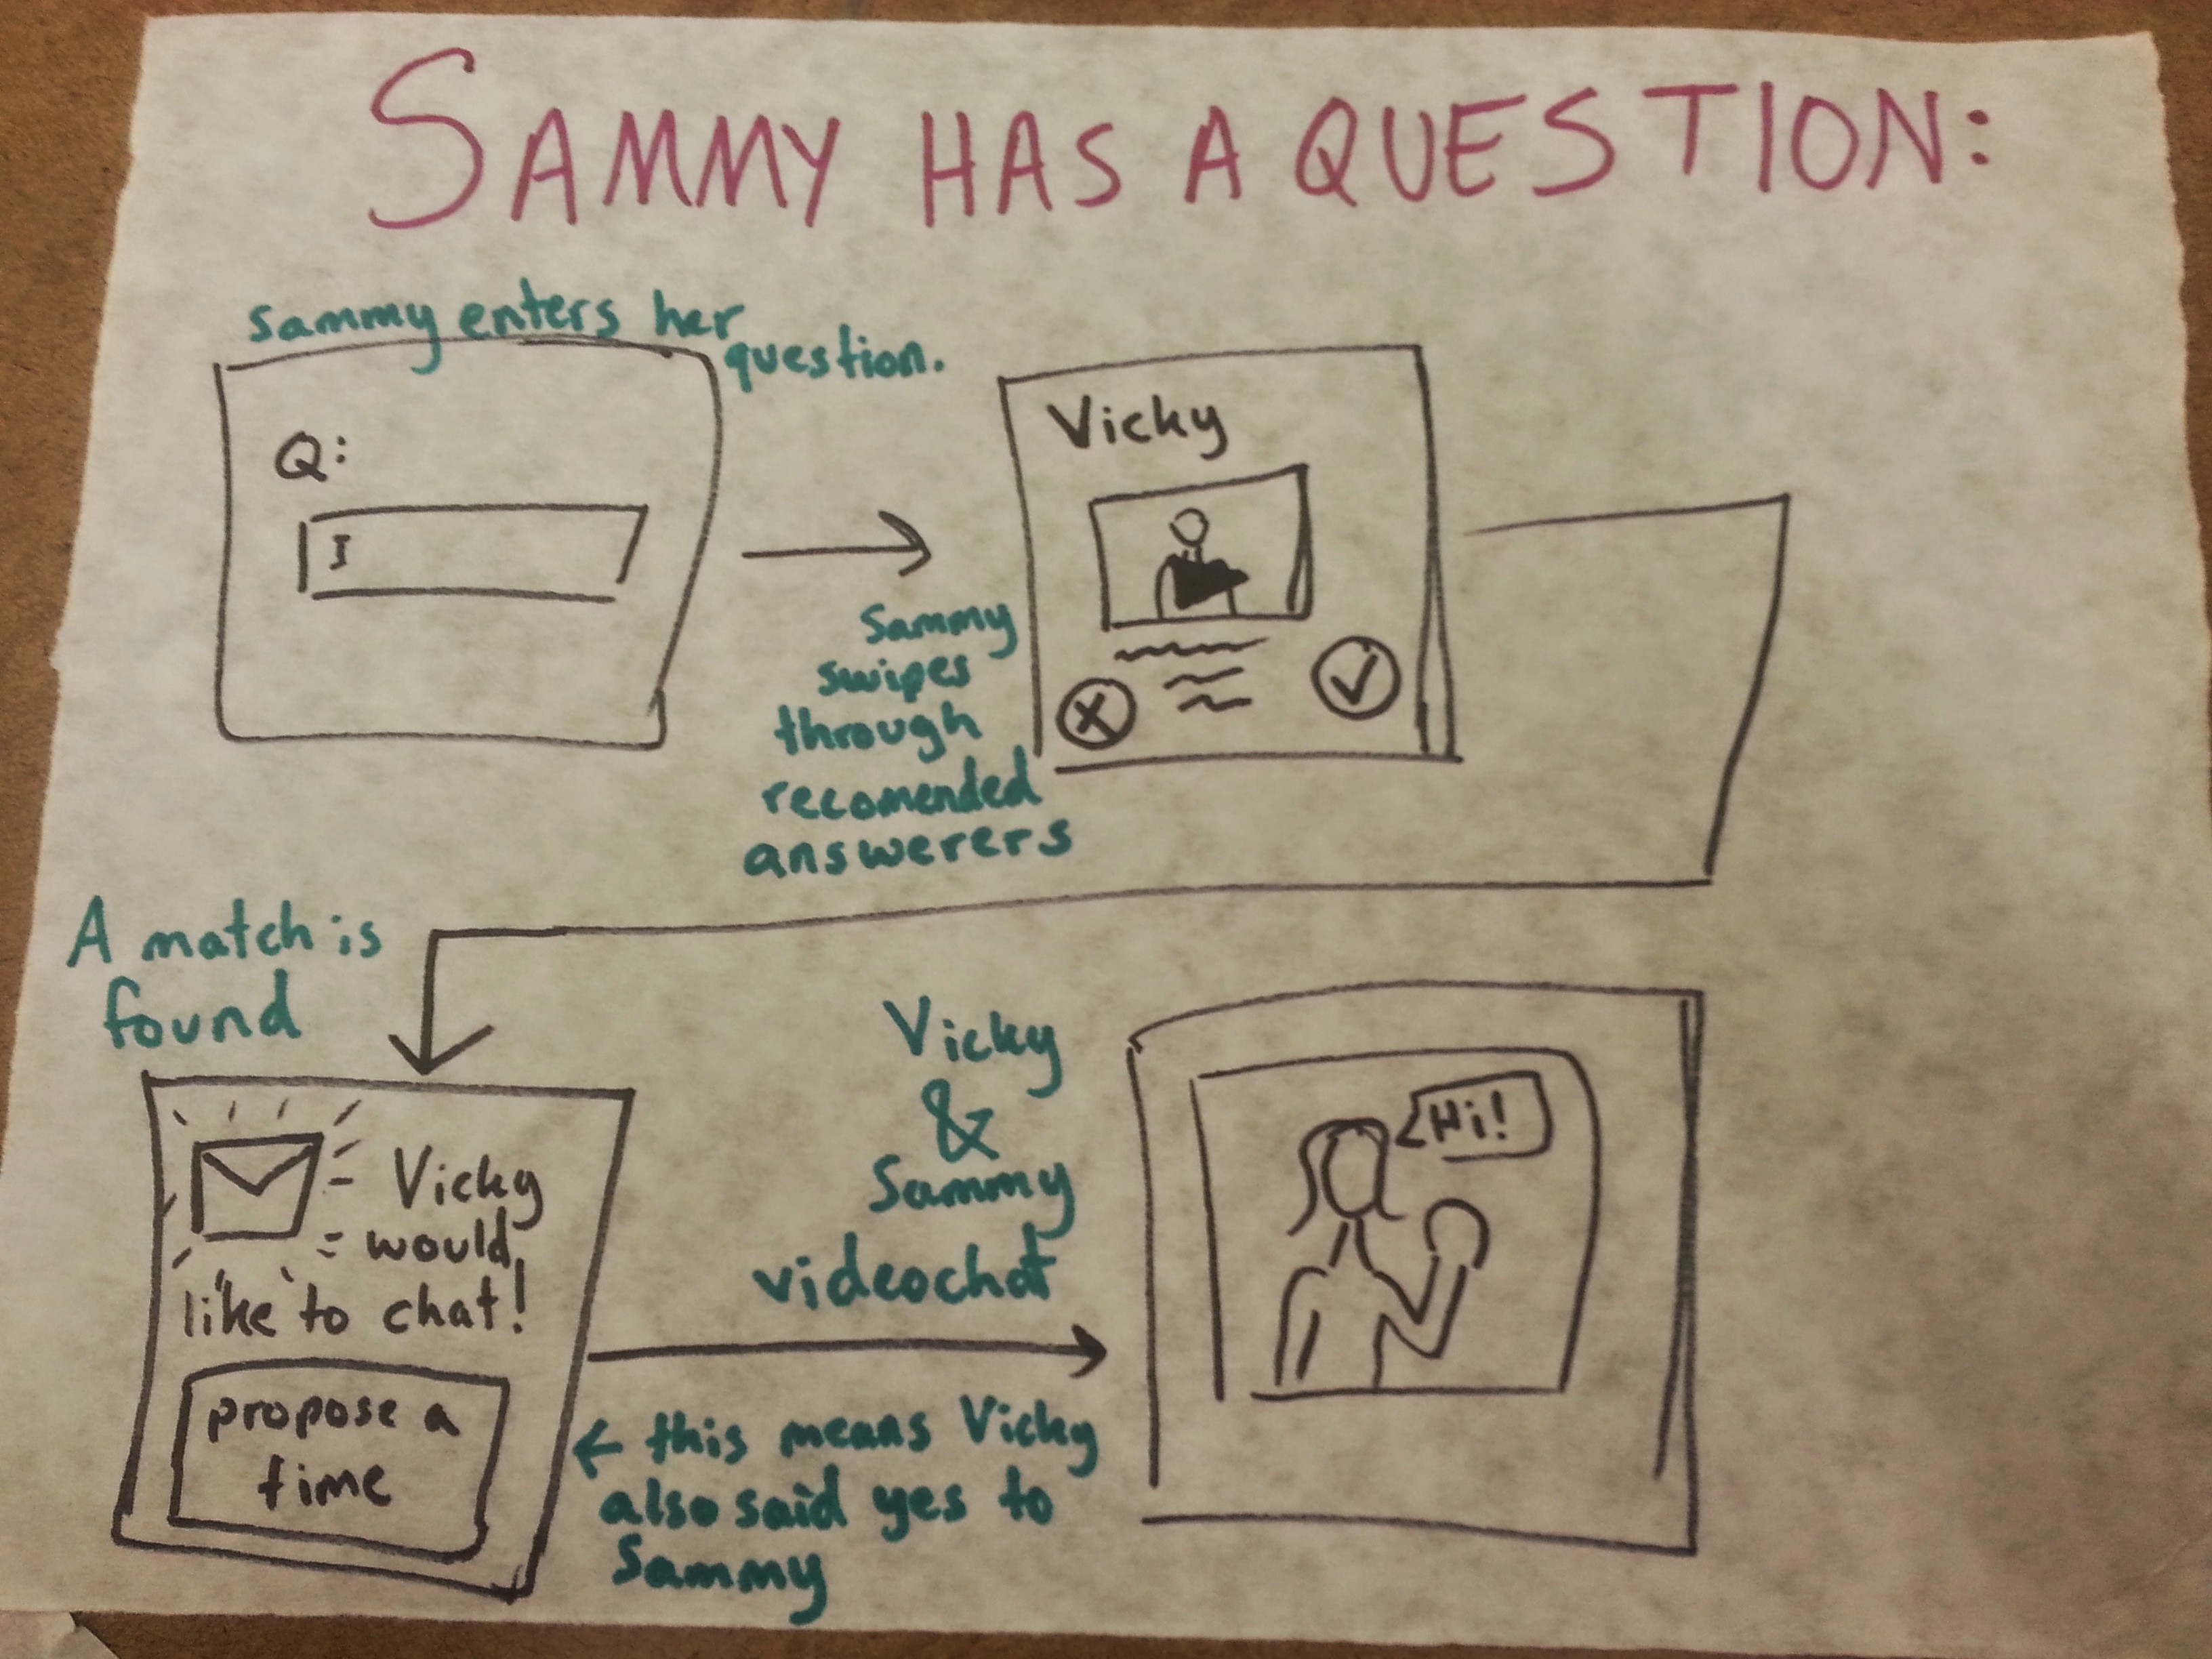 SAMMY HAS A QUESTION:
sammy enters her
question.
Q:
I
Sammy
swipes
through
recomended
answerers
Vicky
A match is
found
Vicky
would
like to chat!
propose a
time
Vicky
&
Sammy
videochat
← this means Vicky
also said yes to
Sammy
Hi!